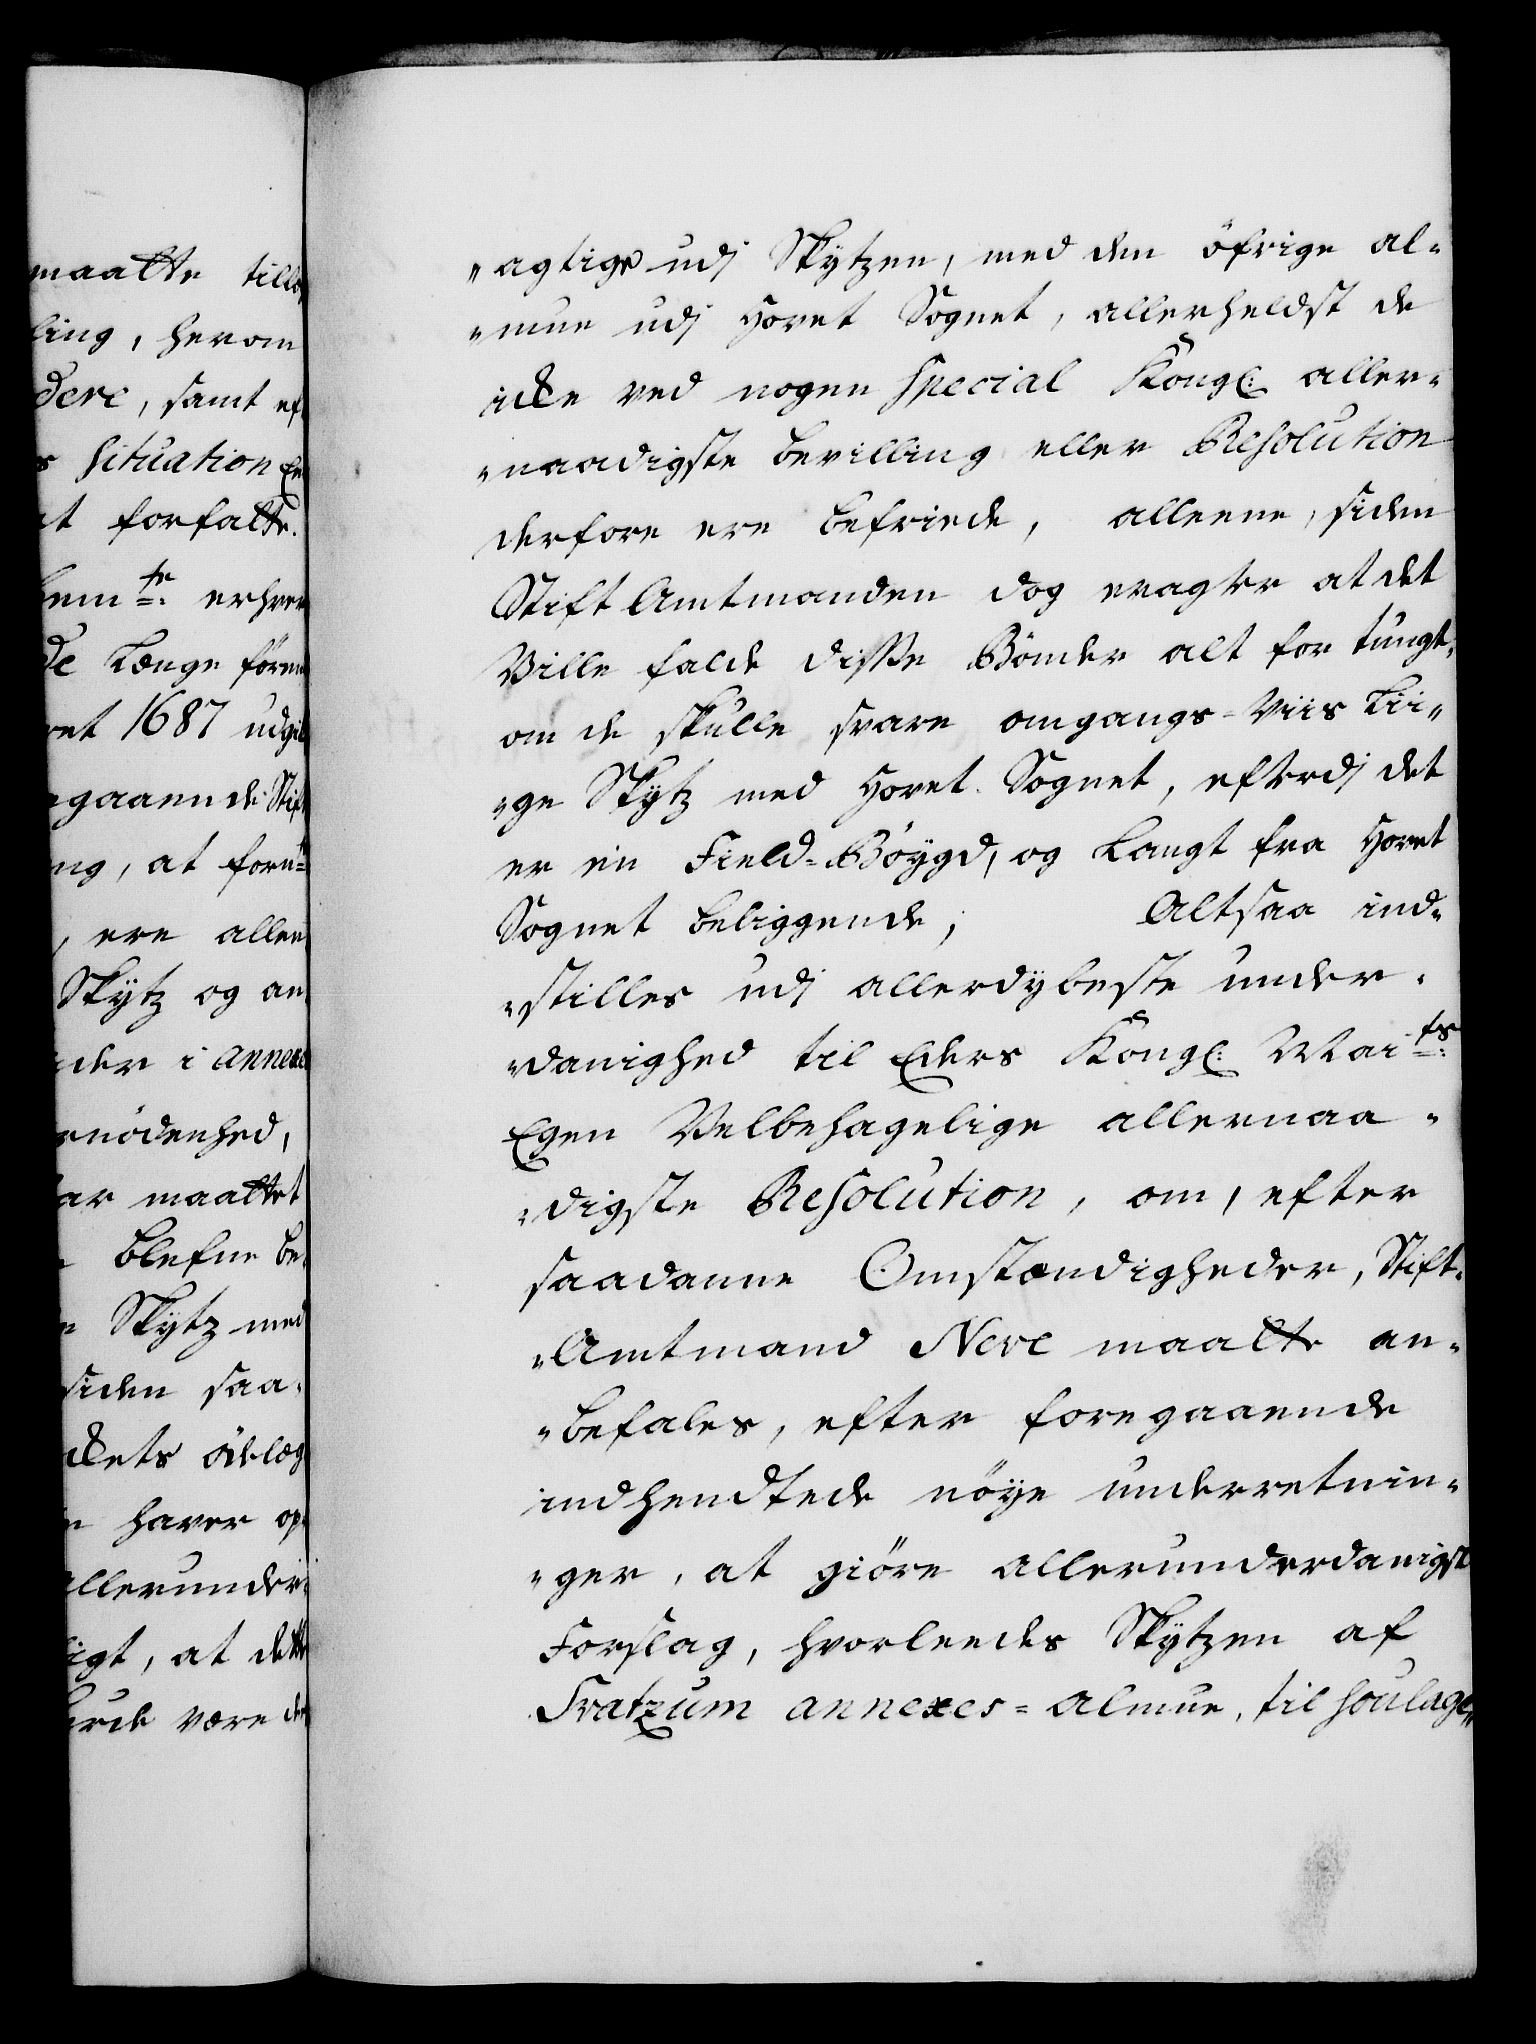 maatte till
ling, herom
dere, samt ef
s Situation En
t forfatte.
bem.te erhver
de Længe føren
ret 1687 udgi
gaaende Stif
ng, at forn
, ere alleen
Skytz og an
der i annexe
rnødenhed,
ar maattet
blefne be
Skytz med
siden saa-
ckets ödelæg
haver op-
allerunder-
igt, at dette
burde være de
„agtige udj Skytzen, med den öfrige al-
„mue udj Hovet Sognet, allerheldst de
icke ved nogen Special Kongl: aller-
„naadigste bevilling eller Resolution
derfore ere befriede, alleene, siden
Stift Amtmanden dog eragter at det
Ville falde disse Bönder alt for tungt,
om de skulle svare omgangs-Viis Lii-
„ge Skytz med Hovet Sognet, efterdj det
er en Field-Böygd, og Langt fra Hovet
Sognet beliggende; Altsaa ind-
„stilles udj allerdybeste under-
„danighed til Eders Kongl: Mai.ts
Egen Velbehagelige allernaa-
„digste Resolution, om, efter
saadanne Omstændigheder, Stift-
„Amtmand Nere maatte an-
„befales, efter foregaaende
indhendtede nöye underretnin-
„ger, at giöre allerunderdanigst
Forslag, hvorleedes Skytzen af
Tratzum annexes-almue, til Soulage„